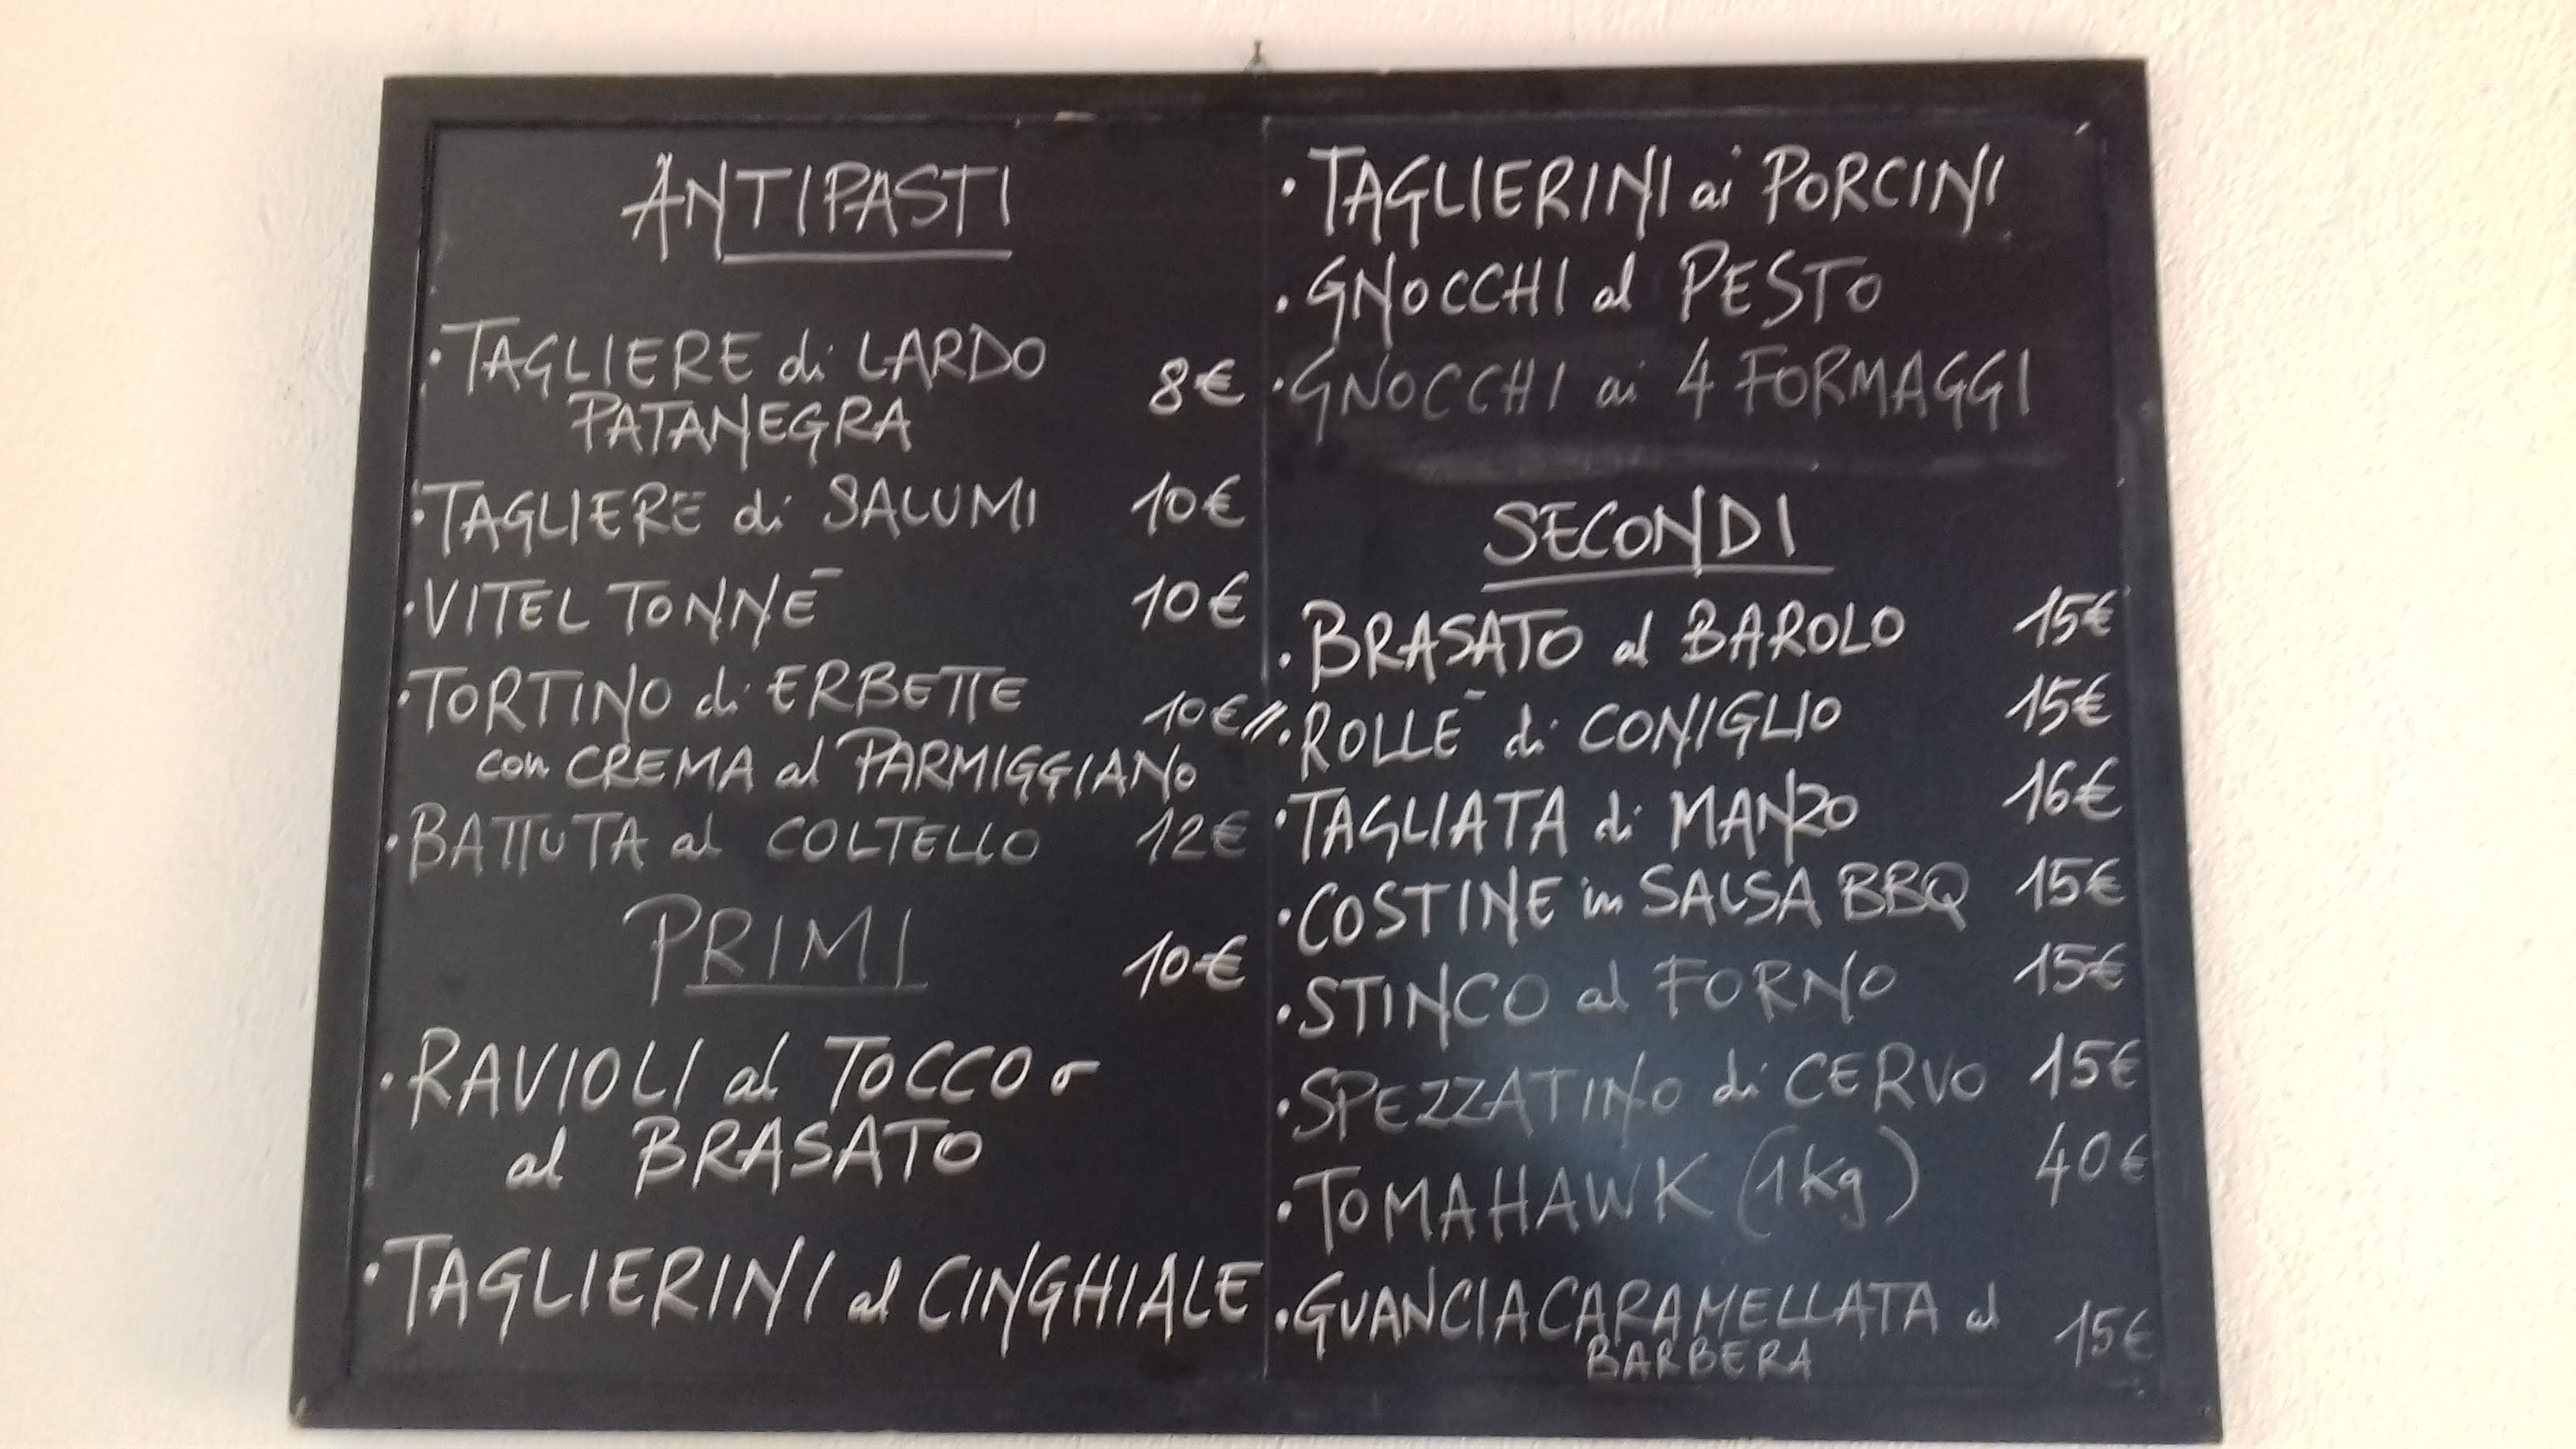 ANTIPASTI
· TAGLIERE di LARDO
PATANEGRA 8€
· TAGLIERE di SALUMI 10€
· VITEL TONNÉ 10€
· TORTINO di ERBETTE 10€
con CREMA al PARMIGGIANO
· BATTUTA al COLTELLO 12€
PRIMI 10€
· RAVIOLI al TOCCO o
al BRASATO
· TAGLIERINI al CINGHIALE
· TAGLIERINI ai PORCINI
· GNOCCHI al PESTO
· GNOCCHI ai 4 FORMAGGI
SECONDI
· BRASATO al BAROLO 15€
· ROLLÉ di CONIGLIO 15€
· TAGLIATA di MANZO 16€
· COSTINE in SALSA BBQ 15€
· STINCO al FORNO 15€
· SPEZZATINO di CERVO 15€
· TOMAHAWK (1kg) 40€
· GUANCIA CARAMELLATA al
BARBERA 15€